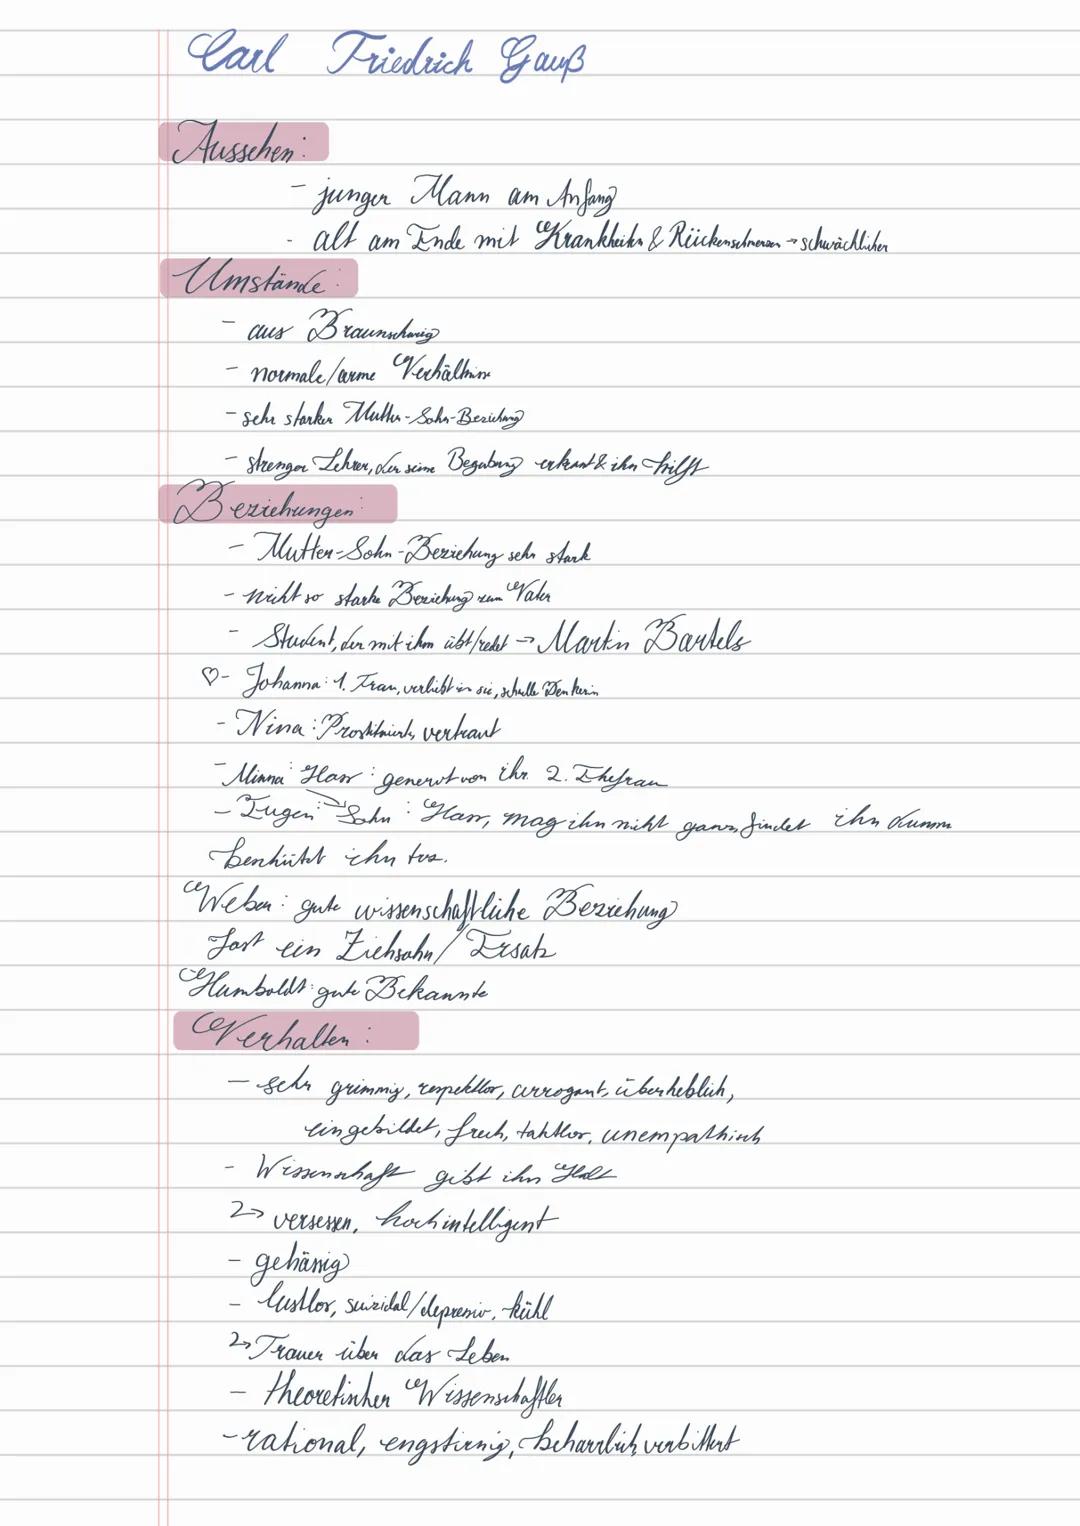 Carl Friedrich Gauß
Aussehen:
- junger Mann am Anfang
- alt am Ende mit Krankheiten & Rückenschmerzen → schwächlicher
Umstände:
- aus Braunschweig
- normale/arme Verhältnisse
- sehr starker Mutter-Sohn-Beziehung
- strenger Lehrer, der seine Begabung erkannt & ihn hilft
Beziehungen:
- Mutter-Sohn-Beziehung sehr stark
- nicht so starke Beziehung zum Vater
- Student, der mit ihm übt/redet → Martin Bartels
♡- Johanna: 1. Frau, verliebt in sie, schnelle Denkerin
- Nina: Prostituierte, vertraut
- Minna: Hass: genervt von ihr. 2. Ehefrau
- Eugen: → Sohn: Hass, mag ihn nicht ganz, findet ihn dumm
benhützt ihn tos.
Weber: gute wissenschaftliche Beziehung
Fast ein Ziehsohn/Ersatz
Humboldt: gute Bekannte
Verhalten:
- sehr grimmig, respektlos, arrogant, überheblich,
eingebildet, frech, taktlos, unempathisch
- Wissenschaft gibt ihn Halt
↳ versessen, hochintelligent
- gehässig
- lustlos, suizidal/depressiv, kühl
↳ Trauer über das Leben
- theoretischer Wissenschaftler
- rational, engstirnig, beharrlich, verbittert